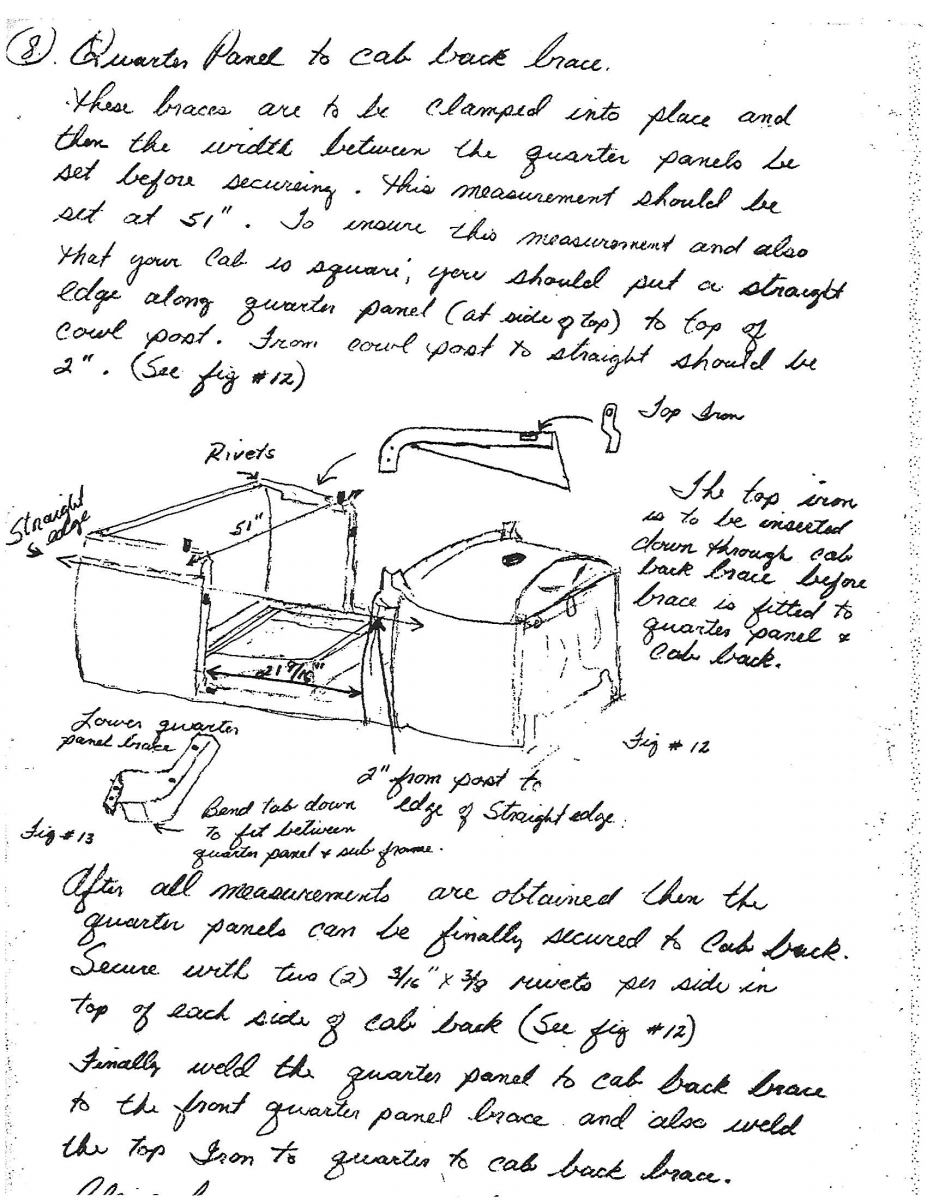 (8). Quarter Panel to cab back brace.
These braces are to be clamped into place and
then the width between the quarter panels be
set before secureing. This measurement should be
set at 51". To insure this measurement and also
that your Cab is square, you should put a straight
edge along quarter panel (at side of top) to top of
cowl post. From cowl post to straight should be
2". (See fig #12)
Top Iron
Rivets
Straight
edge
51"
The top iron
is to be inserted
down through cab
back brace before
brace is fitted to
quarter panel &
Cab back.
21 7/16"
Lower quarter
panel brace
Fig # 12
2" from post to
edge of Straight edge.
Bend tab down
to fit between
quarter panel & sub frame.
Fig # 13
After all measurements are obtained then the
quarter panels can be finally secured to Cab back.
Secure with two (2) 3/16" X 3/8 rivets per side in
top of each side of cab back (See fig #12)
Finally weld the quarter panel to cab back brace
to the front quarter panel brace and also weld
the top Iron to quarter to cab back brace.